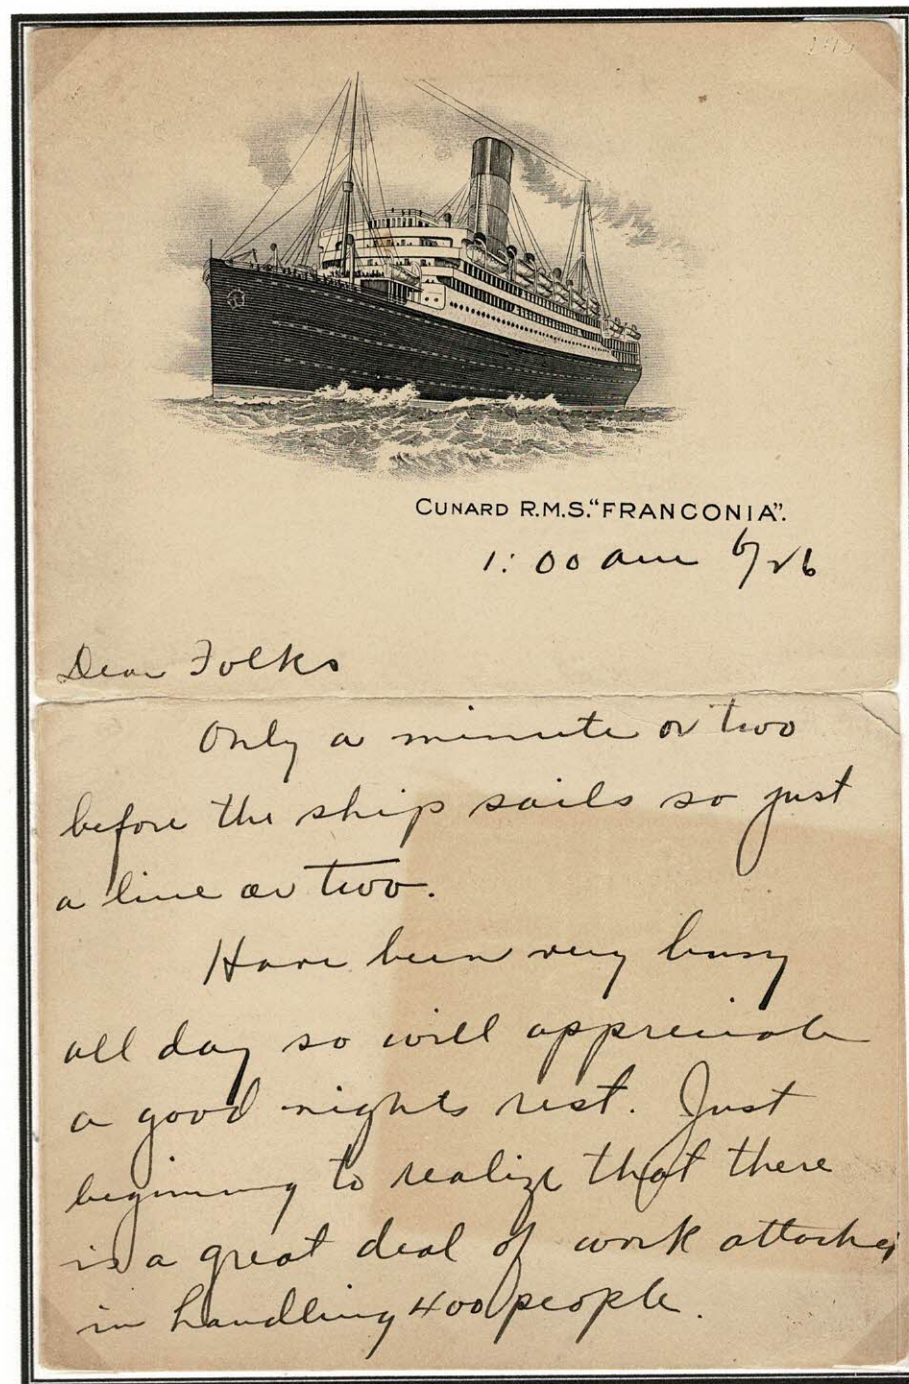 CUNARD R.M.S. "FRANCONIA".
1:00 am 6/26
Dear Folks
Only a minute or two
before the ship sails so just
a line or two.
Have been very busy
all day so will appreciate
a good nights rest. Just
beginning to realize that there
is a great deal of work attached
in handling 400 people.